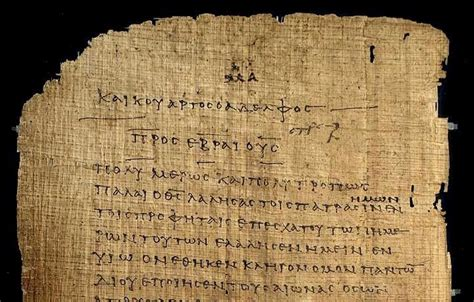 ΚΑΙΚΟΥΑΡΤΟϹΟΑΔΕΛΦΟϹ
ΠΡΟϹ ΕΒΡΑΙΟΥϹ
ΠΟΛΥΜΕΡΩϹ ΚΑΙΠΟΛΥΤΡΟΠΩϹ
ΗΜΩΝ
ΠΑΛΑΙΟΘϹΛΑΛΗϹΑϹΤΟΙϹΠΑΤΡΑϹΙΝΕΝ
ΤΟΙϹΠΡΟΦΗΤΑΙϹΕΠΕϹΧΑΤΟΥΤΩΝΗΜΕ
ΡΩΝΤΟΥΤΩΝΕΛΑΛΗϹΕΝΗΜΕΙΝΕΝ
ΥΙΩΟΝΕΘΗΚΕΝΚΛΗΡΟΝΟΜΟΝΠΑΝΤΩ
ΔΙΟΥΕΠΟΙΗϹΕΝΤΟΥϹΑΙΩΝΑϹΟϹΩΝ